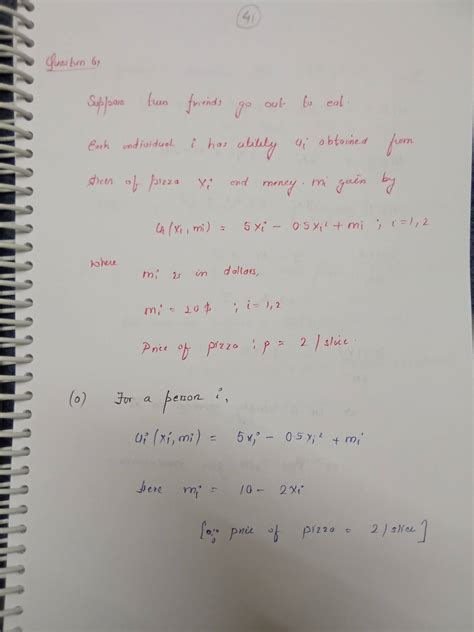 41
Question 6:
Suppose two friends go out to eat.
Each individual i has utility Ui obtained from
slices of pizza Xi and money mi given by
Ui(xi, mi) = 5xi - 05xi² + mi ; i=1,2
Where
mi is in dollars,
mi = 20$ ; i=1,2
Price of pizza ; p = 2/slice.
(a) For a person i,
Ui(xi, mi) = 5xi - 05xi² + mi
Here mi = 10 - 2xi
[∵ price of pizza = 2/slice]